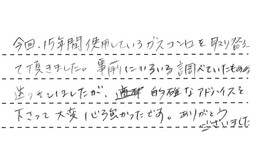 今回、15年間使用しているガスコンロを取り替え
て頂きました。事前にいろいろ調べていたものの
迷っていましたが、適確 的確なアドバイスを
下さって大変心強かったです。ありがとう
ございました